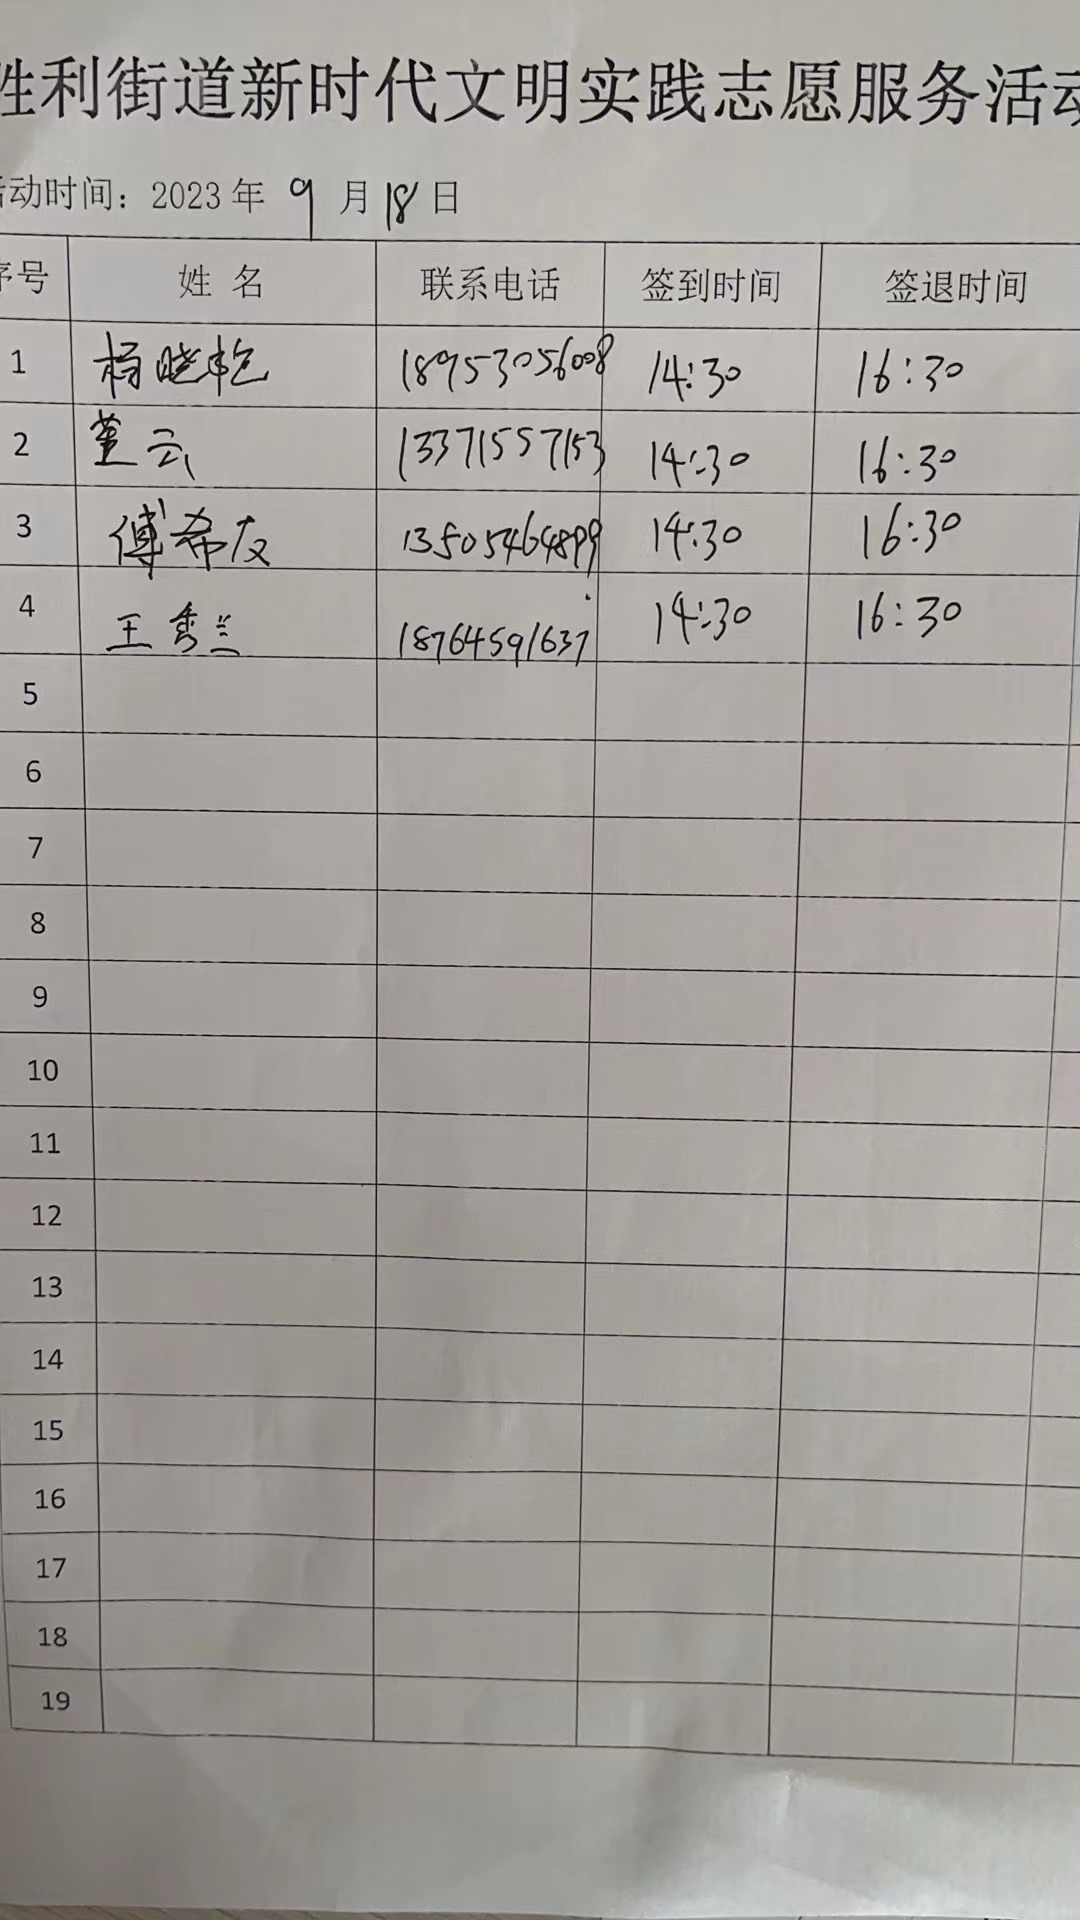 胜利街道新时代文明实践志愿服务活动
活动时间：2023年 9 月 18 日
序号 姓 名 联系电话 签到时间 签退时间
1 杨晓艳 18953056008 14:30 16:30
2 董云 13371557153 14:30 16:30
3 傅希友 13505464899 14:30 16:30
4 王秀兰 18764591637 14:30 16:30
5
6
7
8
9
10
11
12
13
14
15
16
17
18
19